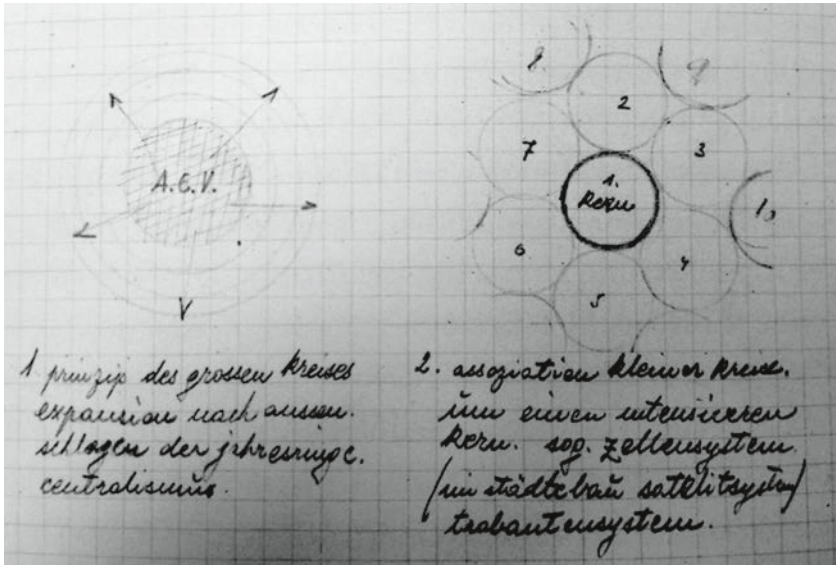 A.E.V.
8.
2
9
7
3
1.
Kern
10
6
4
5
1 prinzip des grossen kreises
expansion nach aussen.
schlagen der jahresringe.
centralismus.
2. assoziation kleiner kreise.
um einen intensiveren
kern. sog. zellensystem
(im städtebau satelitsystem)
trabantensystem.